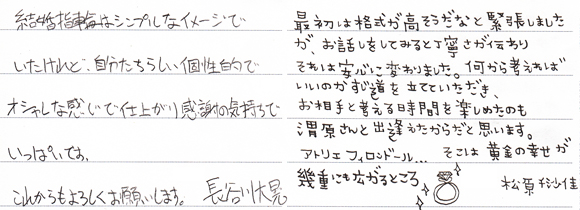 結婚指輪はシンプルなイメージで
いたけれど、自分たちらしい個性的で
オシャレな感じで仕上がり感謝の気持ちで
いっぱいです。
これからもよろしくお願いします。 長谷川大晃
最初は格式が高そうだなと緊張しました
が、お話しをしてみると丁寧さが伝わり
それは安心に変わりました。何から考えれば
いいのかずっと道を立てていただき、
お相手と考える時間を楽しめたのも
渭原さんと出逢えたからだと思います。
アトリエ フィロンドール... そこは 黄金の幸せが
幾重にも広がるところ
松原 佳